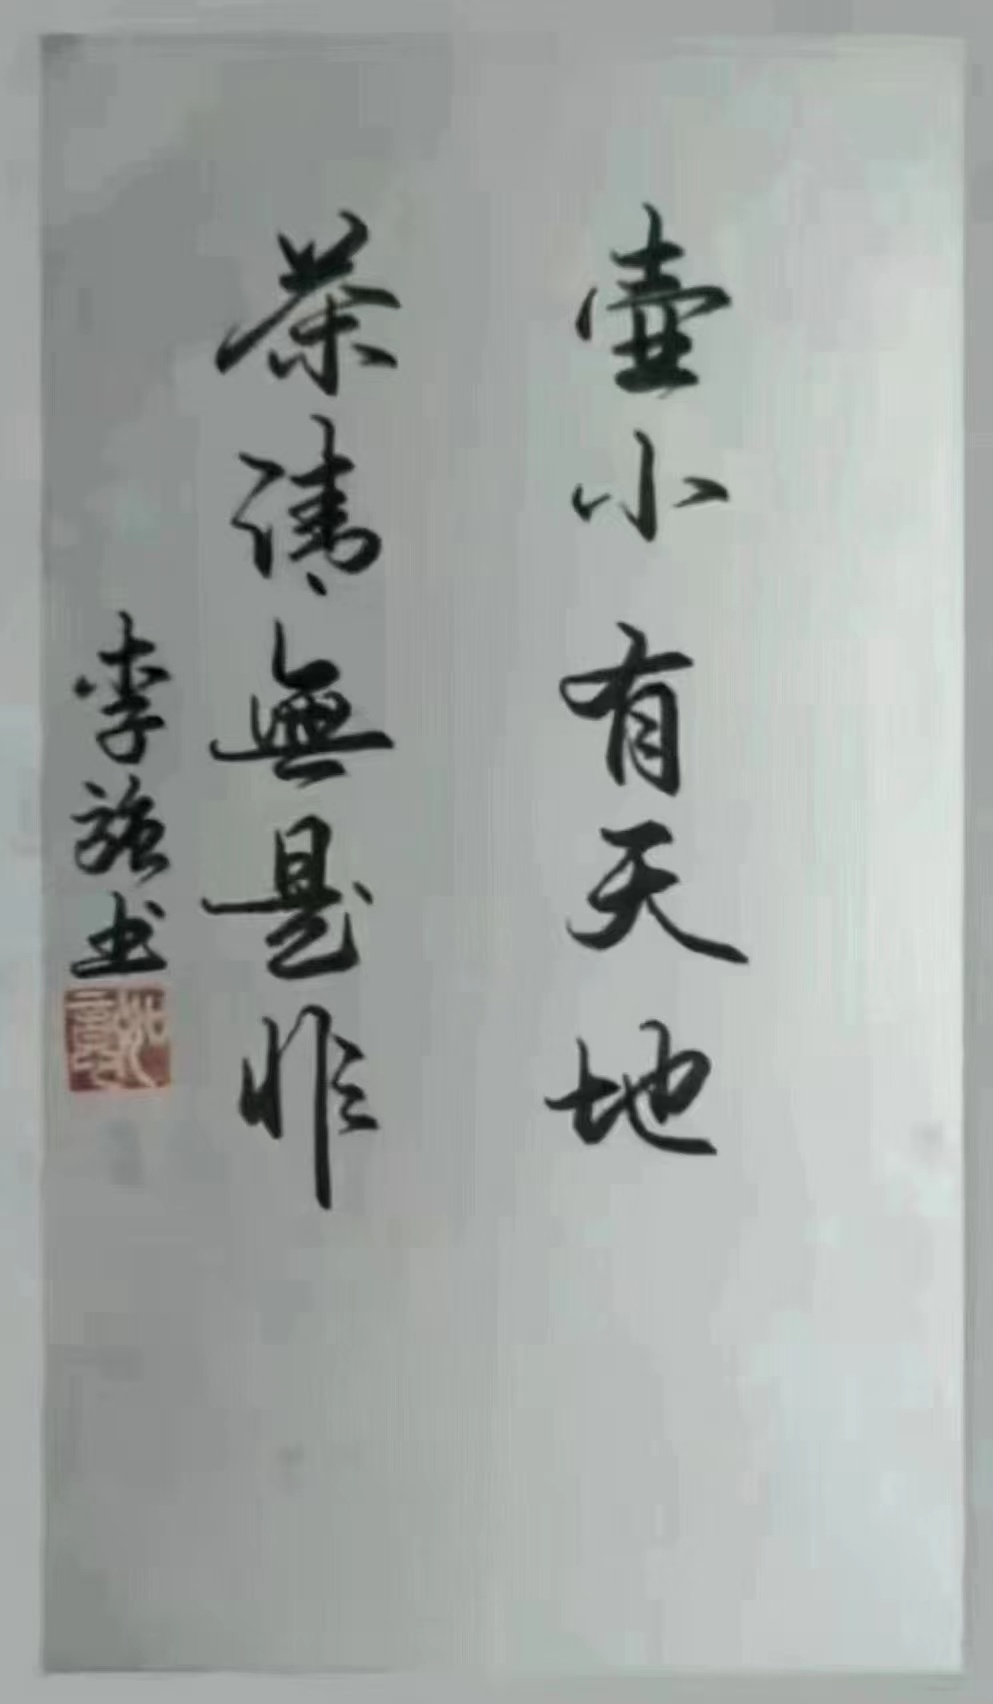 壺小有天地
茶清無是非
李强书